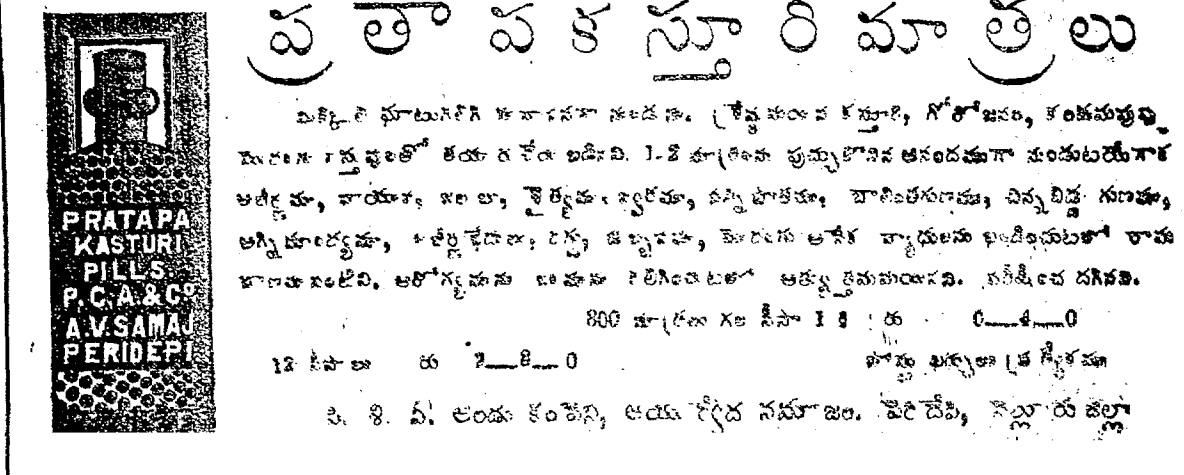 ప్రతాపకస్తూరిమాత్రలు
PRATAPA
KASTURI
PILLS
P.C.A.&Cº
A.V.SAMAJ
PERIDEPI
ఘాటుగలిగి నుండును. శ్రేష్ఠమయిన కస్తూరి, గోరోజనం, కుంకుమపువ్వు
మొదలగు వస్తువులతో తయారుచేయ బడినవి. 1-2 మాత్రలను పుచ్చుకొనిన ఆనందముగా నుండుటయేగాక
అజీర్ణము, శైత్యము, జ్వరము, సన్నిపాతము, బాలింతగుణము, చిన్నబిడ్డ గుణము,
అగ్నిమాంద్యము, మొదలగు అనేక వ్యాధులను ఖండించుటలో రామ
బాణమువంటివి. ఆరోగ్యమును బలమును కలిగించుటలో అత్యుత్తమమయినవి. పరీక్షించ దగినవి.
300 మాత్రలు గల సీసా 1 కి రు 0—4—0
12 సీసాలు రు 2—8—0 పోస్టు ఖర్చులు ప్రత్యేకము
పి. శి. ఏ. అండు కంపెని, ఆయుర్వేద సమాజం. పెరిదేపి, నెల్లూరు జిల్లా